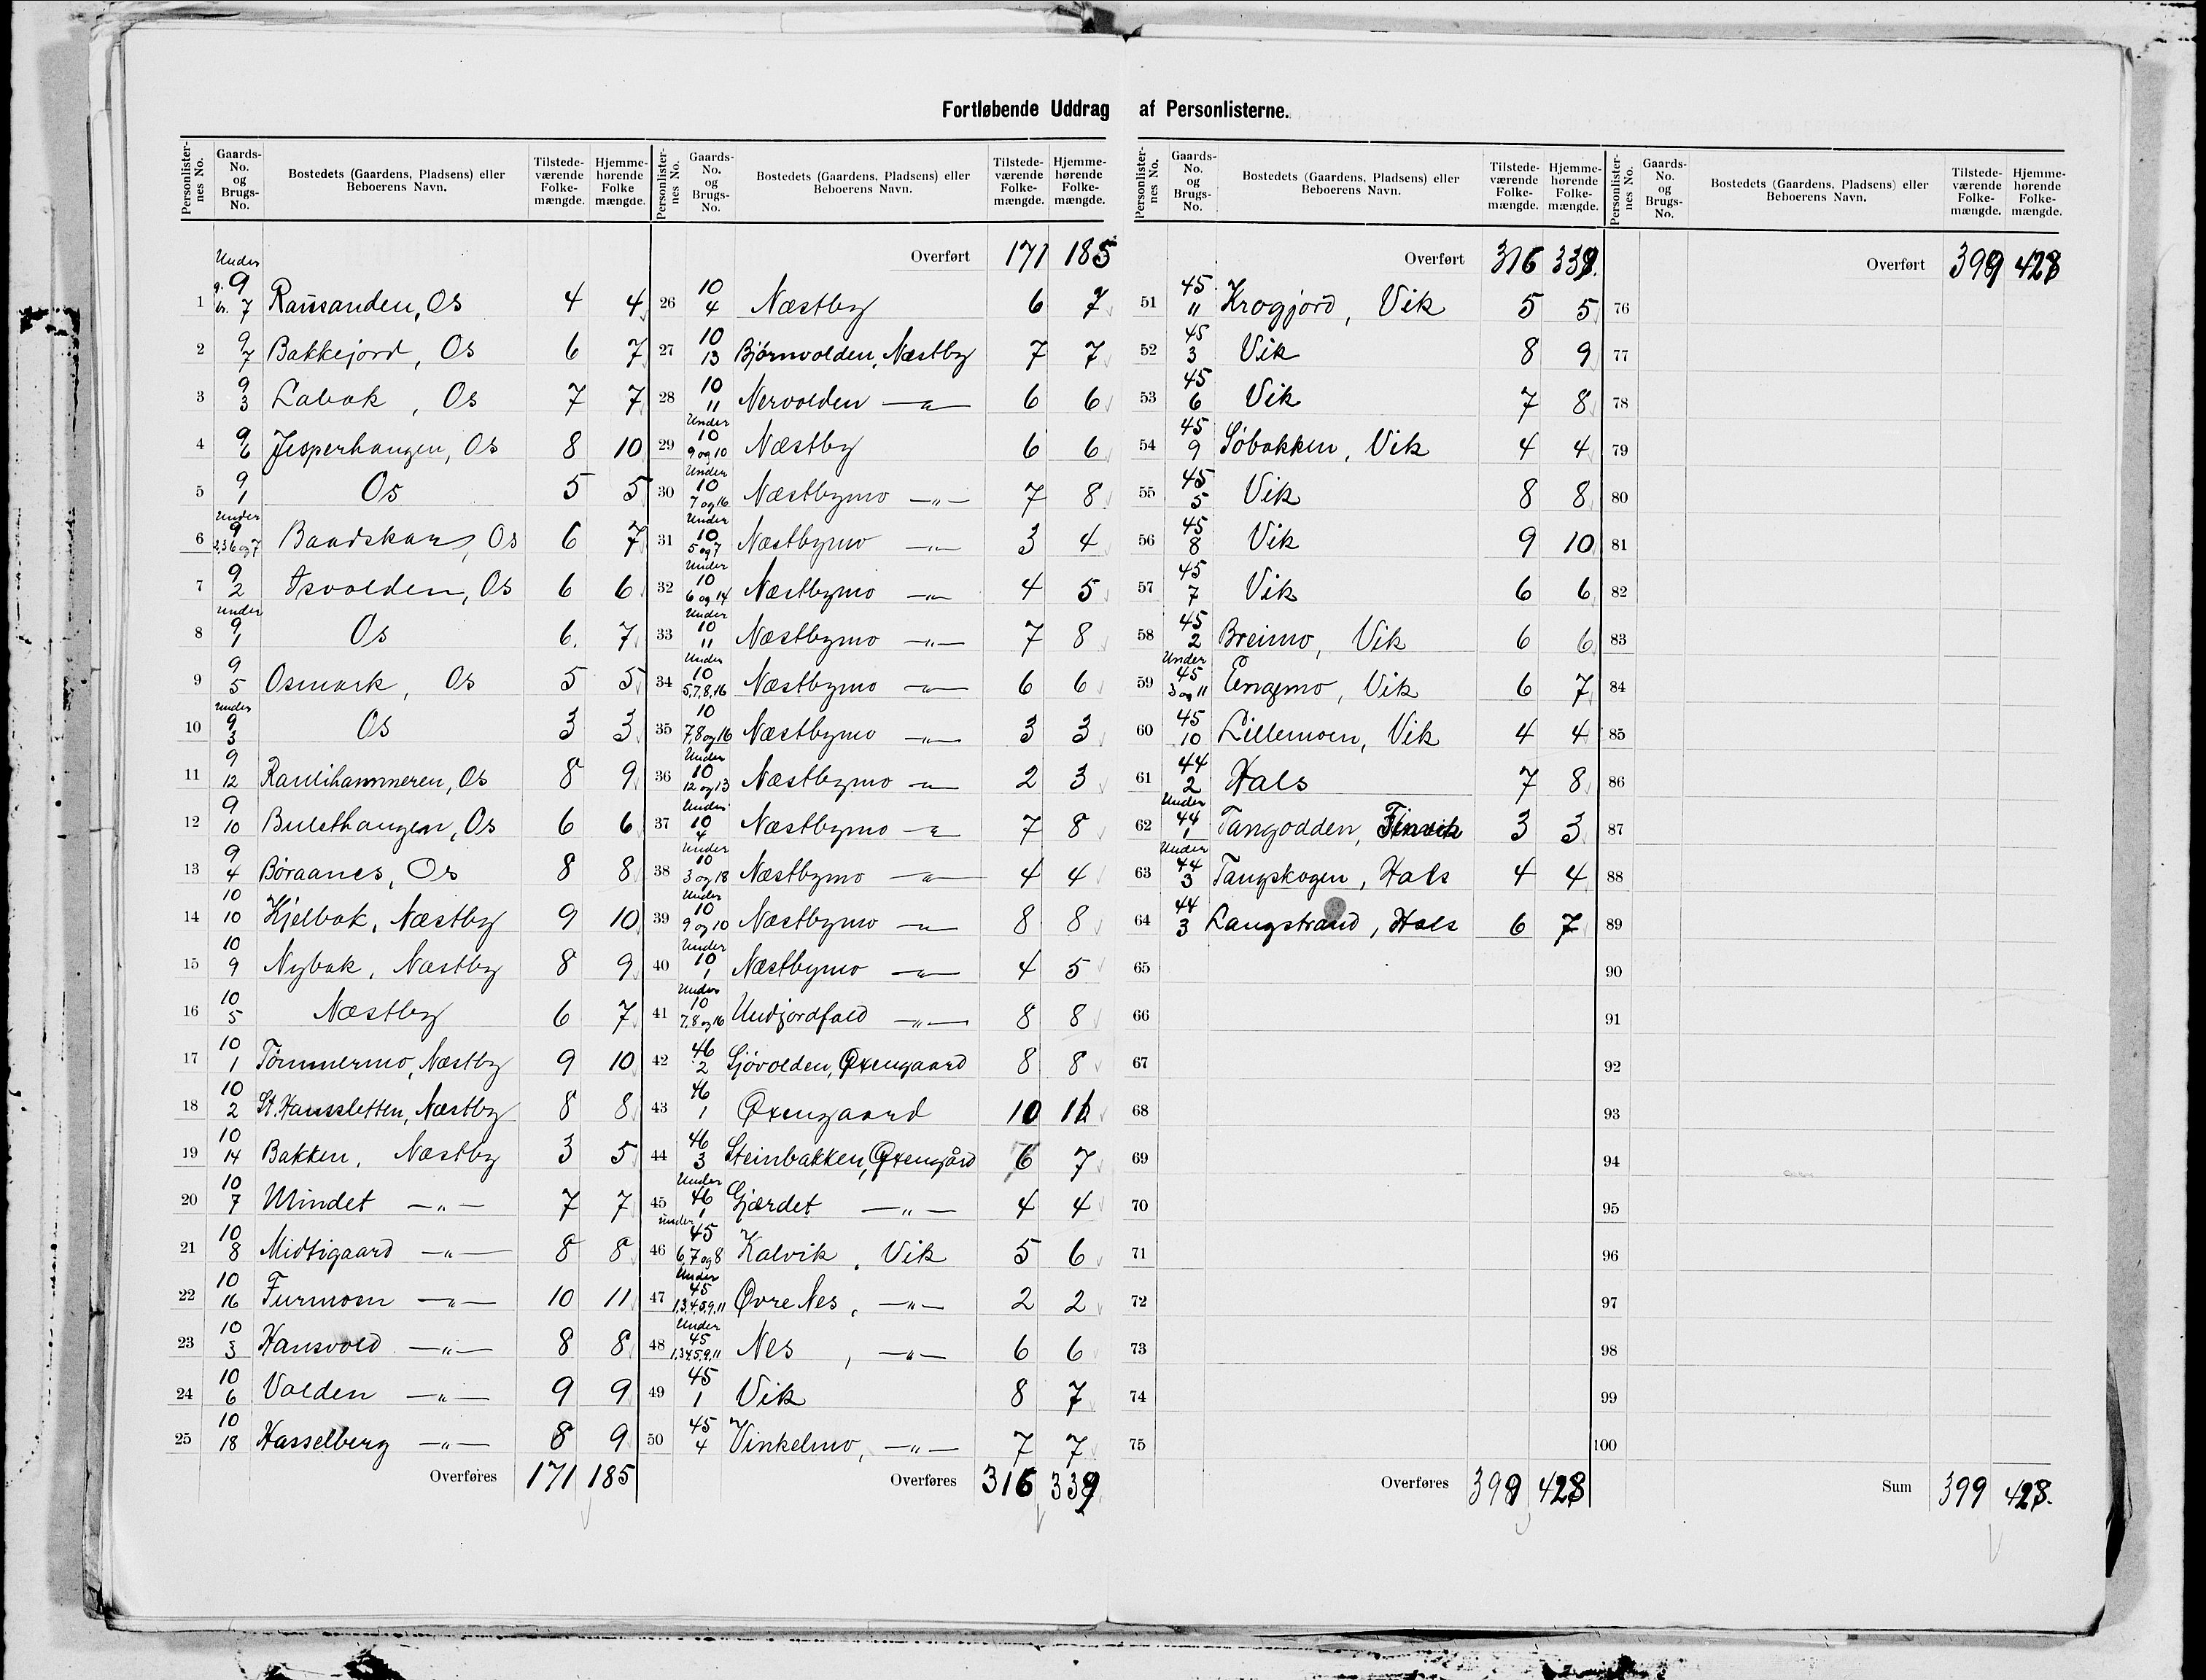 Fortløbende Uddrag af Personlisterne.
Personlisternes No. Gaards-No. og Brugs-No. Bostedets (Gaardens, Pladsens) eller Beboerens Navn. Tilstedeværende Folkemængde. Hjemmehørende Folkemængde.
Under
1 g. 9 br. 7 Raissanden, Os 4 4
2 9 7 Bakkejord, Os 6 7
3 9 3 Labak, Os 7 7
4 9 6 Jesperhaugen, Os 8 10
5 9 1 Os 5 5
6 Under 9 2,3 6 og 7 Baadskar, Os 6 7
7 9 2 Isvolden, Os 6 6
8 under 9 1 Os 6. 7
9 9 5 Osmark, Os 5 5
10 Under 9 3 Os 3 3
11 9 12 Raulihammeren, Os 8 9
12 9 10 Bulethaugen, Os 6 6
13 9 4 Böraanes, Os 8 8
14 10 10 Kjelbak, Næstby 9 10
15 10 9 Nybak, Næstby 8 9
16 10 5 Næstby 6 7
17 10 1 Tömmermo, Næstby 9 10
18 10 2 St. Hanssletten, Næstby 8 8
19 10 14 Bakken, Næstby 3 5
20 10 7 Mindet —"— 7 7
21 10 8 Midtigaard —"— 8 8
22 10 16 Furmoen —"— 10 11
23 10 3 Hansvold —"— 8 8
24 10 6 Volden —"— 9 9
25 10 18 Hasselberg —"— 8 9
Overføres 171 185
Personlisternes No. Gaards-No. og Brugs-No. Bostedets (Gaardens, Pladsens) eller Beboerens Navn. Tilstedeværende Folkemængde. Hjemmehørende Folkemængde.
Overført 171 185
26 10 4 Næstby 6 7
27 10 13 Bjørnvolden, Næstby 7 7
28 10 11 Nervolden —"— 6 6
29 Under 10 9 og 10 Næstby 6 6
30 Under 10 7 og 16 Næstbymo —"— 7 8
31 Under 10 5 og 7 Næstbymo —"— 3 4
32 Under 10 6 og 14 Næstbymo —"— 4 5
33 Under 10 11 Næstbymo —"— 7 8
34 Under 10 5,7,8,16 Næstbymo —"— 6 6
35 10 7,8 og 16 Næstbymo —"— 3 3
36 Under 10 12 og 13 Næstbymo —"— 2 3
37 Under 10 4 Næstbymo —"— 7 8
38 Under 10 3 og 18 Næstbymo —"— 4 4
39 Under 10 9 og 10 Næstbymo —"— 8 8
40 Under 10 1 Næstbymo —"— 4 5
41 Under 10 7,8 og 16 Undjordfald —"— 8 8
42 46 2 Sjøvolden, Øxengaard 8 8
43 46 1 Øxengaard 10
44 46 3 Steinbakken, Øxengård 6 7
45 Under 46 1 Gjærdet —"— 4 4
46 under 45 6,7 og 8 Kalvik, Vik 5 6
47 Under 45 1,3,4,5,9,11 Øvre Nes, —"— 2 2
48 Under 45 1,3,4,5,9,11 Nes, —"— 6 6
49 45 1 Vik 8 7
50 45 4 Vinkelmo, —"— 7 7
Overføres 316 339
Personlisternes No. Gaards-No. og Brugs-No. Bostedets (Gaardens, Pladsens) eller Beboerens Navn. Tilstedeværende Folkemængde. Hjemmehørende Folkemængde.
Overført 316 339.
51 45 11 Krogjord, Vik 5 5
52 45 3 Vik 8 9
53 45 6 Vik 7 8
54 45 9 Söbakken, Vik 4 4
55 45 5 Vik 8 8
56 45 8 Vik 9 10
57 45 7 Vik 6 6
58 45 2 Breimo, Vik 6 6
59 Under 45 3 og 11 Engemo, Vik 6 7
60 45 10 Lillemoen, Vik 4 4
61 44 2 Hals 7 8
62 Under 44 1 Tangodden, 3 3
63 Under 44 3 Tangskogen, Hals 4 4
64 44 3 Langstrand, Hals 6 7
65
66
67
68
69
70
71
72
73
74
75
Overføres 399 428
Personlisternes No. Gaards-No. og Brugs-No. Bostedets (Gaardens, Pladsens) eller Beboerens Navn. Tilstedeværende Folkemængde. Hjemmehørende Folkemængde.
Overført 399 428
76
77
78
79
80
81
82
83
84
85
86
87
88
89
90
91
92
93
94
95
96
97
98
99
100
Sum 399 428.